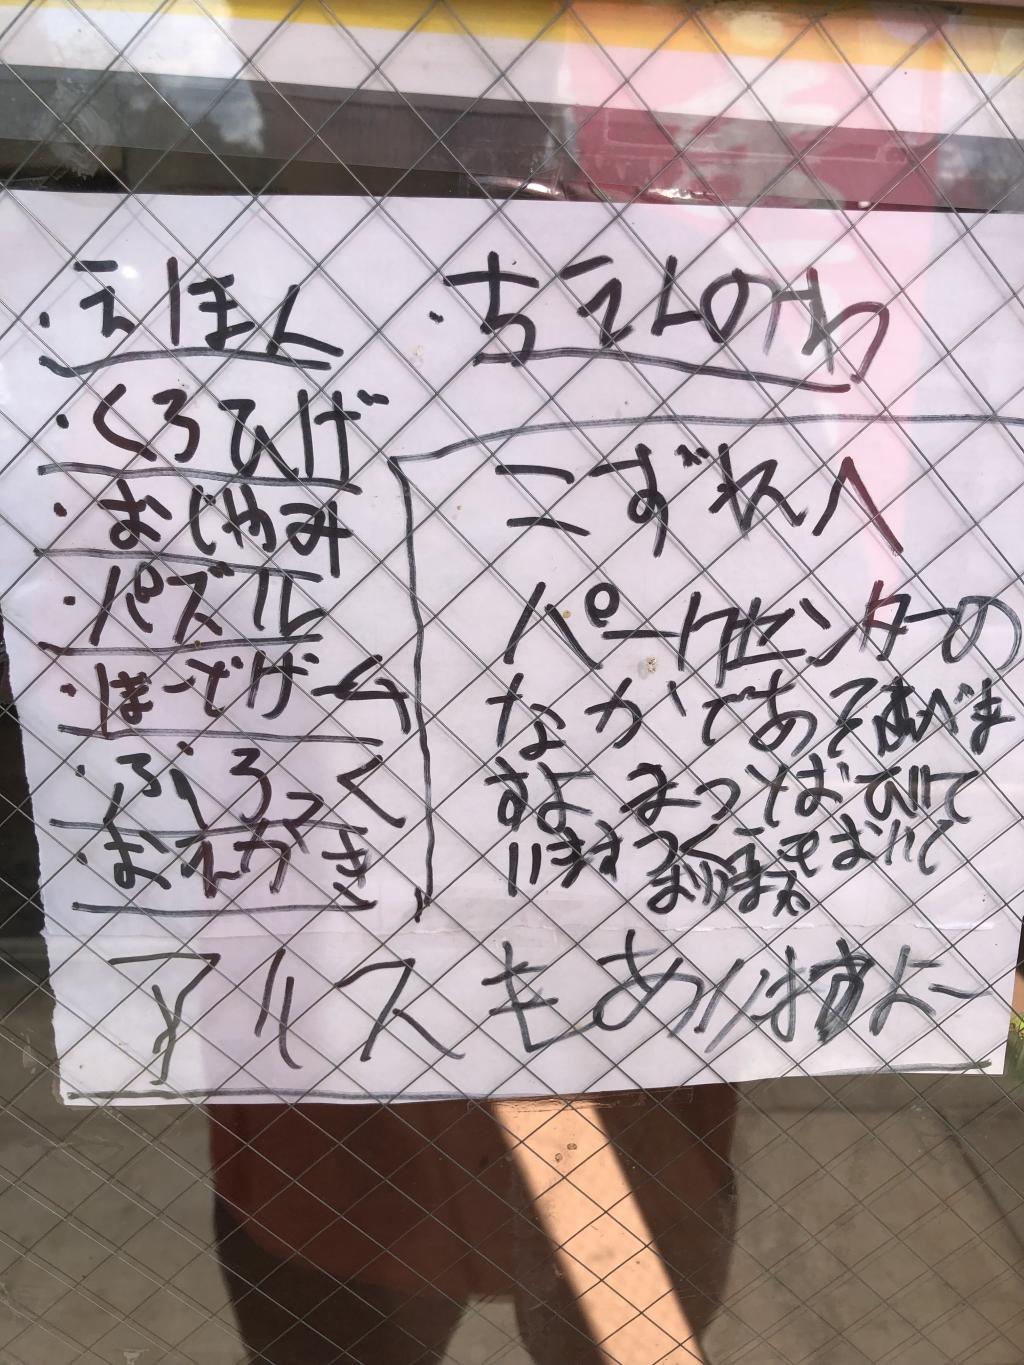 ・えほん
・くろひげ
・おじゃみ
・パズル
・ぼーどげーム
・ぶろっく
・おえかき
・ちえんのわ
こずれへ
パークセンターの
なかであそべま
すよ まっとばひいて
います つくえもおいて
アルスもありますよー